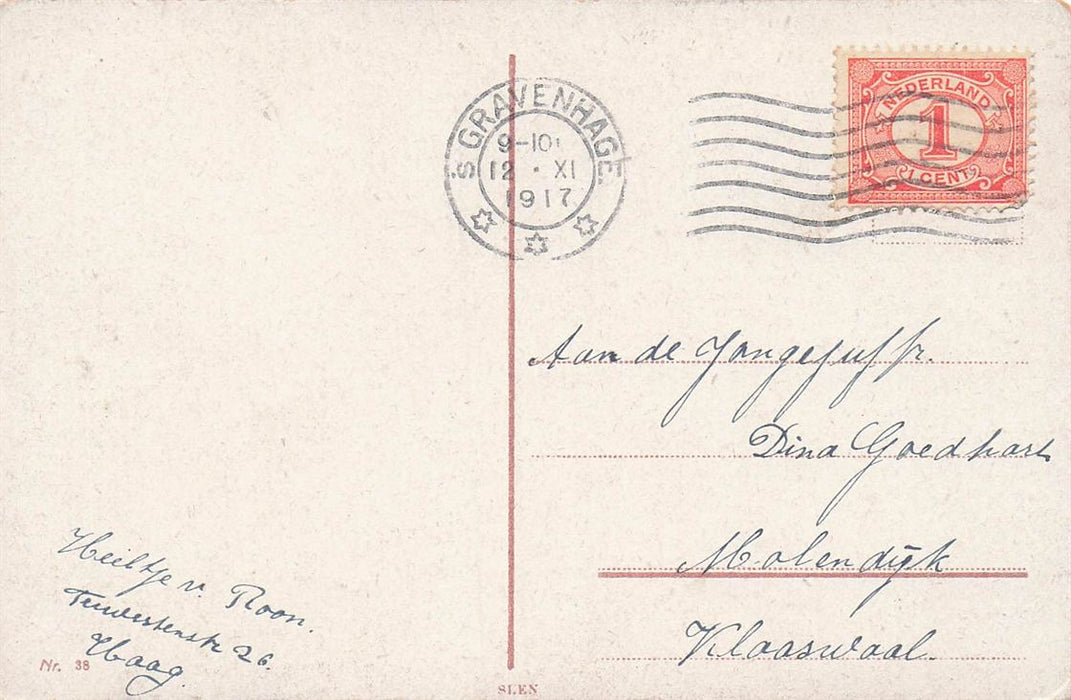 'S GRAVENHAGE.
9-10
12 · XI
1917
NEDERLAND
1
1 CENT
Aan de Jongejuffr.
Dina Goedhart
Molendijk
Klaaswaal.
Heiltje v. Roon.
26.
Haag
Nr. 38
SLEN